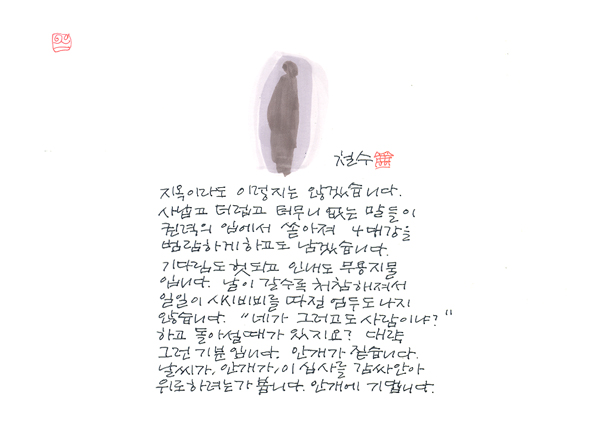 철수
지옥이라도 이렇지는 않겠습니다.
사납고 더럽고 터무니 없는 말들이
권력의 입에서 쏟아져 4대강을
범람하게하고도 남겠습니다.
기다림도 헛되고 인내도 무용지물
입니다. 날이 갈수록 처참해져서
일일이 시시비비를 따질 엄두도 나지
않습니다. "네가 그러고도 사람이냐?"
하고 돌아설때가 있지요? 대략
그런 기분입니다. 안개가 짙습니다.
날씨가, 안개가, 이 심사를 감싸안아
위로하려는가 봅니다. 안개에 기댑니다.